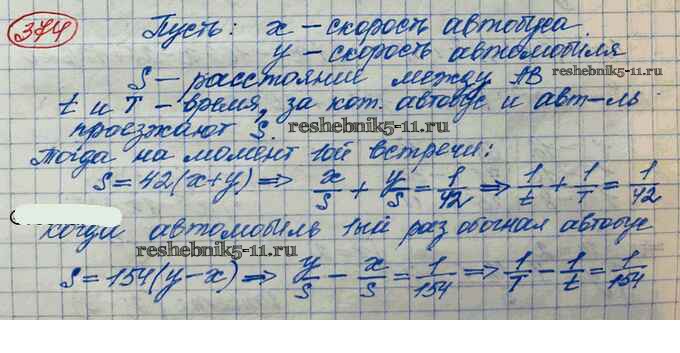 374 Пусть: x – скорость автобуса
y – скорость автомобиля
S – расстояние между AB
reshebnik5-11.ru
t и T – время, за кот. автобус и авт-ль
проезжают S.
reshebnik5-11.ru
Тогда на момент 1ой встречи:
S = 42(x+y) ⇒ x/S + y/S = 1/42 ⇒ 1/t + 1/T = 1/42
Когда автомобиль 1ый раз обогнал автобус
reshebnik5-11.ru
S = 154(y−x) ⇒ y/S − x/S = 1/154 ⇒ 1/T − 1/t = 1/154